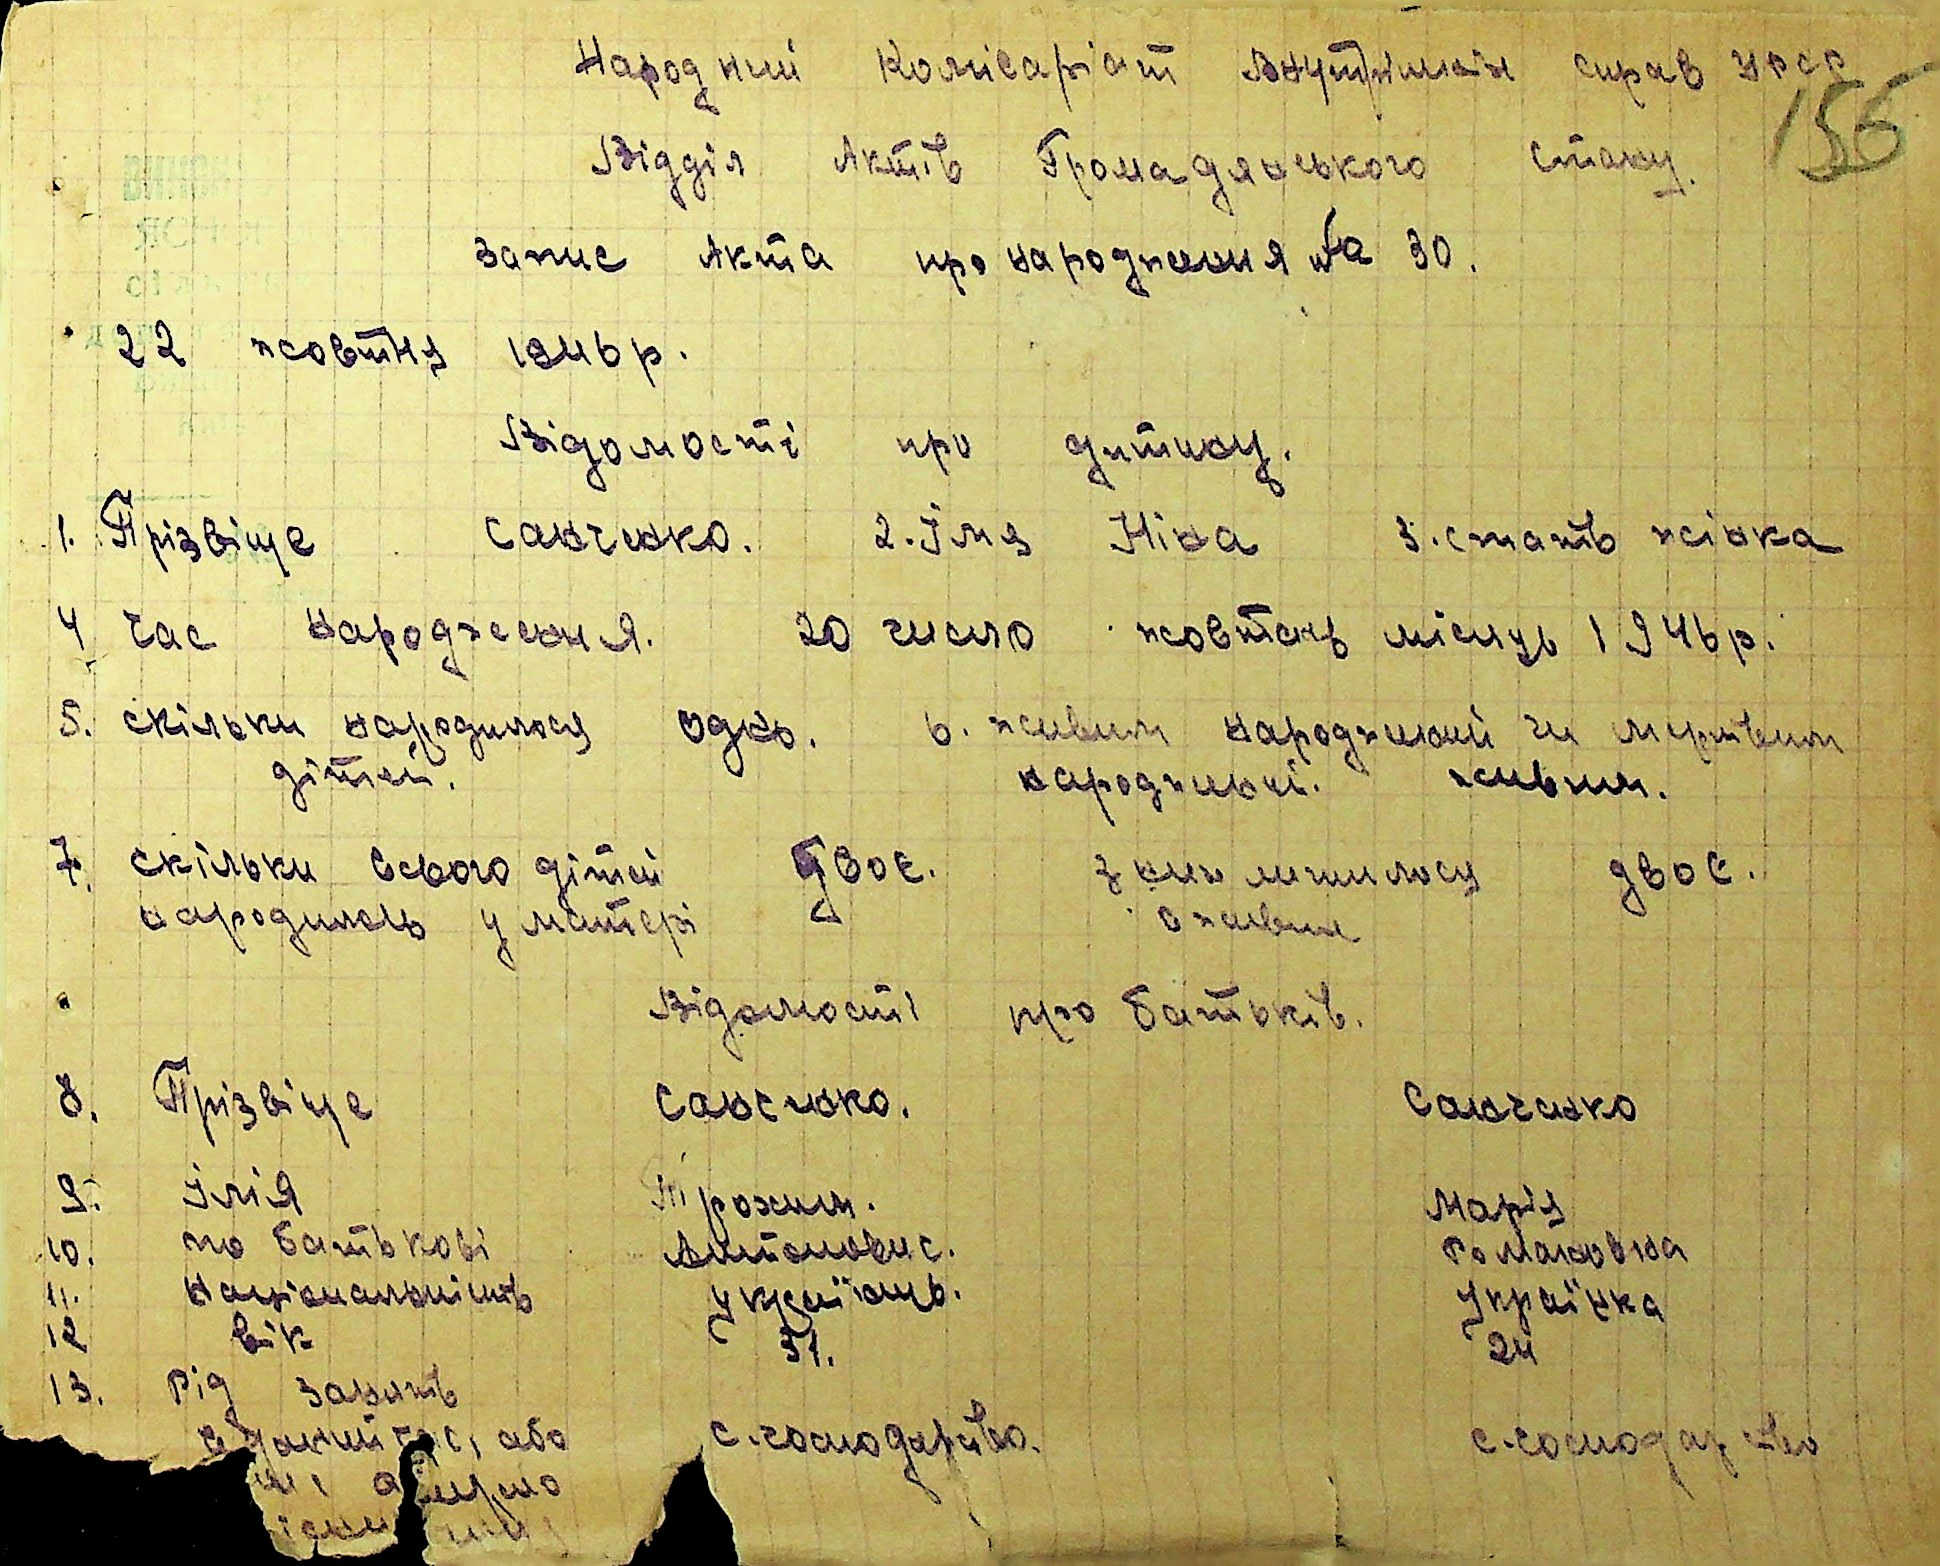 Народний Комісаріат Внутрішніх справ УРСР
156
Відділ Актів Громадянського стану.
Запис Акта про народження № 30.
22 жовтня 1946 р.
Відомості про дитину.
1. Прізвище Санченко. 2. Імя Ніна 3. стать жінка
4 Час народження. 20 число жовтень місяць 1946 р.
5. скільки народилося одно. 6. живим народжений чи мертвим
дітей. народжений. живим.
7. скільки всього дітей двоє. з них лишилося двоє.
народилось у матері в живих
Відомості про батьків.
8. Прізвище Санченко. Санченко
9. Імія Трохим. Марія
10. по батькові Антонович. Романовна
11. Національність українець. Українка
12 вік 31. 24
13. Рід занять
або с. господарство. с. господарство